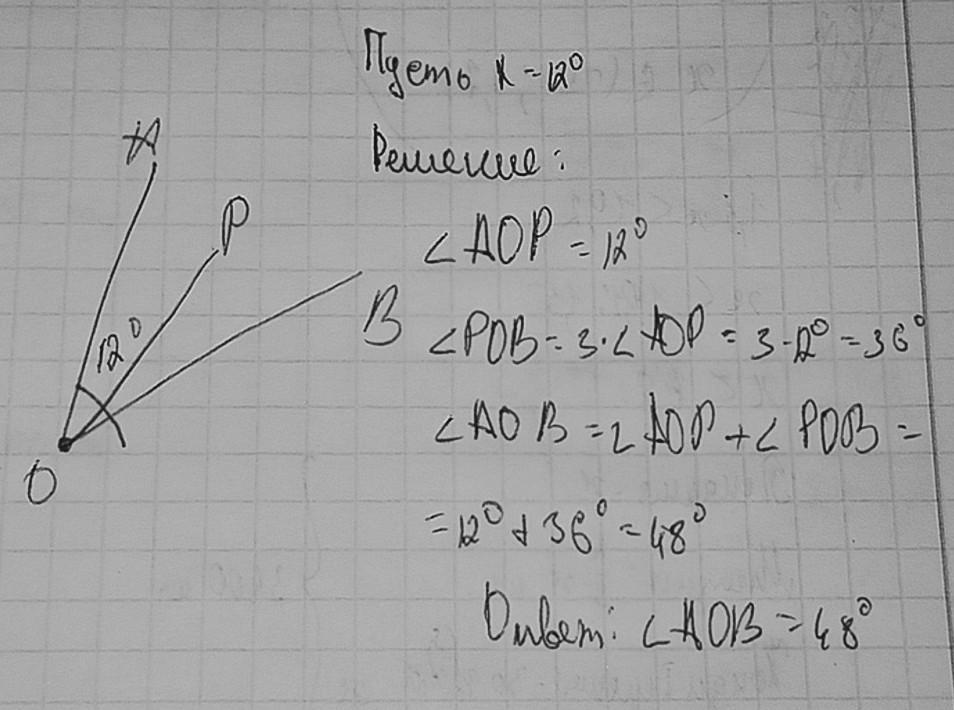 Пусть x = 12°
Решение:
A
P
B
12°
O
∠AOP = 12°
∠POB = 3·∠AOP = 3·12° = 36°
∠AOB = ∠AOP + ∠POB =
= 12° + 36° = 48°
Ответ: ∠AOB = 48°